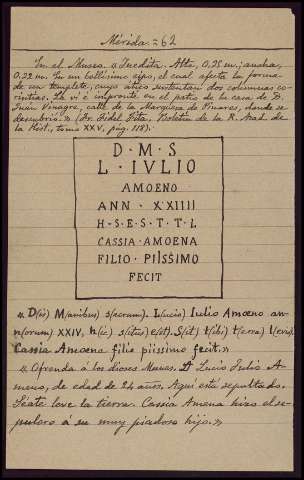 Mérida. = 62
En el Museo. « Inedita. Alto, 0,75 m.; ancho,
0,22 m. En un bellísimo cipo, el cual afecta la forma
de un templete, cuyo ático sustentan dos columnas co-
rintias. La vi é impronté en el patio de la casa de D.
Juan Vinagre, calle de la Marquesa de Pinares, donde se
descubrió.» (Dr. Fidel Fita, Boletín de la R. Acad. de
la Hist., tomo XXV, pág. 118).
D·M·S
L·IVLIO
AMOENO
ANN·XXIIII
H·S·E·S·T·T·L
CASSIA·AMOENA
FILIO·PIISSIMO
FECIT
« D(is) M(anibus) s(acrum). L(ucio) Iulio Amoeno an-
n(orum) XXIV. h(ic) s(itus) e(st). S(it) t(ibi) t(erra) l(evis).
Cassia Amoena filio piissimo fecit.»
« Ofrenda á los dioses Manes. Á Lucio Julio A-
meno, de edad de 24 años. Aquí está sepultado.
Séate leve la tierra. Cassia Amena hizo el se-
pulcro á su muy piadoso hijo.»